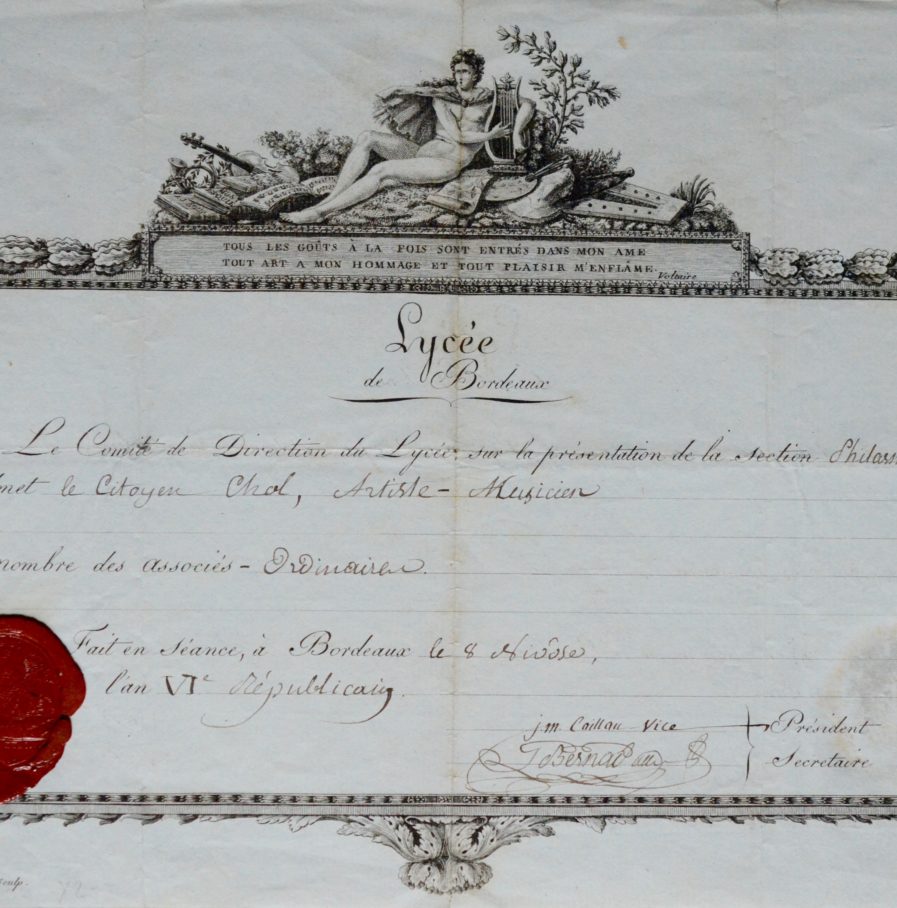 TOUS LES GOÛTS À LA FOIS SONT ENTRÉS DANS MON AME
TOUT ART A MON HOMMAGE ET TOUT PLAISIR M'ENFLÂME.
Voltaire
Lycée
de Bordeaux
Le Comité de Direction du Lycée, sur la présentation de la Section
le Citoyen Chol, Artiste-Musicien
nombre des associés-Ordinaires.
Fait en Séance, à Bordeaux le 8 Nivôse,
l'an VIe Républicain.
j.m. Caillau Vice Président
Secretaire
Sculp.